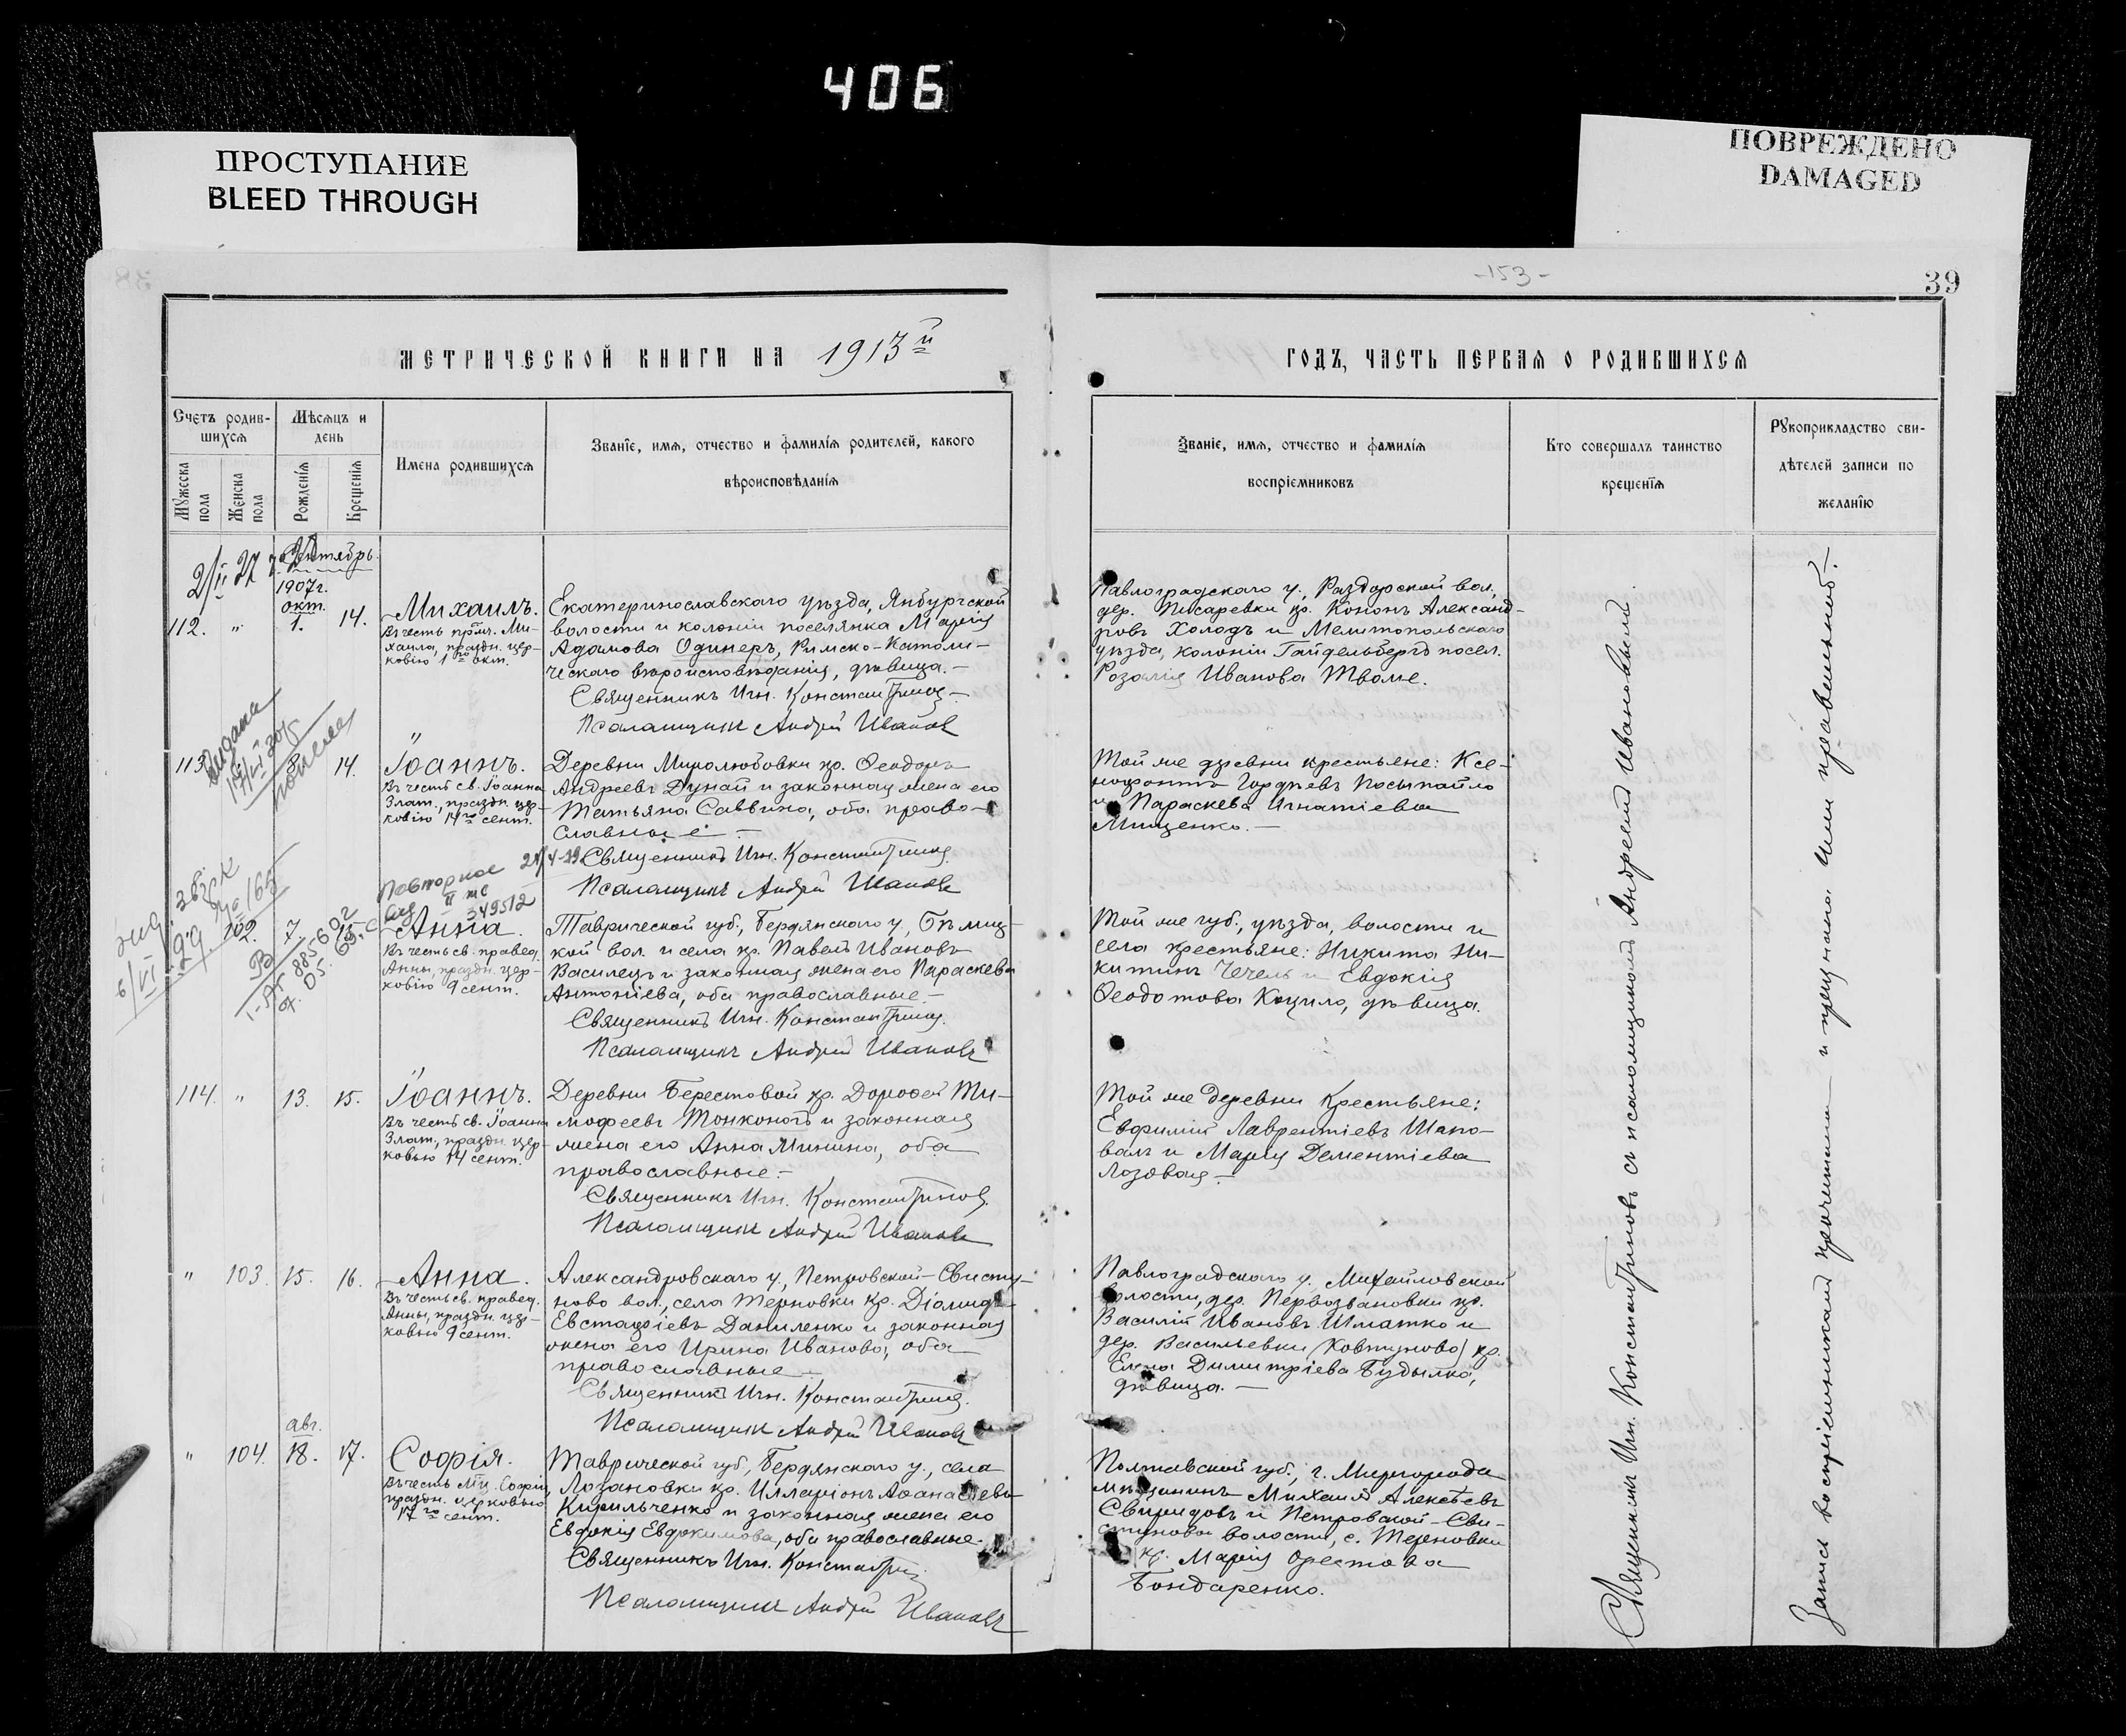 406
ПРОСТУПАНИЕ
BLEED THROUGH
ПОВРЕЖДЕНО
DAMAGED
-153-
39
МЕТРИЧЕСКОЙ КНИГИ НА 1913й
ГОДЪ, ЧАСТЬ ПЕРВАЯ О РОДИВШИХСЯ
Счетъ родив-
шихся
Мужеска пола
Женска пола
Мѣсяцъ и
день
Рожденія
Крещенія
Имена родившихся
Званіе, имя, отчество и фамилія родителей, какого
вѣроисповѣданія
Званіе, имя, отчество и фамилія
воспріемниковъ
Кто совершалъ таинство
крещенія
Рукоприкладство сви-
дѣтелей записи по
желанію
Сентябрь
1907г.
окт.
112. " 1. 14. Михаилъ.
Въ честь
хаила, праздн. цер-
ковію 1го окт.
Екатеринославскаго уѣзда, Ямбургской
волости и колоніи поселянка Марія
Адамова Одинеръ, Римско-Католи-
ческаго вѣроисповѣданія, дѣвица.-
Священникъ Игн. Константиновъ
Псаломщикъ Андрей Ивановъ
Павлоградскаго у., Раздорской вол.,
дер. Писаревки кр. Кононъ Александ-
ровъ Холодъ и Мелитопольскаго
уѣзда, колоніи Гайдельбергъ посел.
Розалія Иванова
113. " 14. Іоаннъ.
Въ честь св. Іоанна
Злат., праздн. цер-
ковію 14го сент.
Деревни Миролюбовки кр. Ѳеодоръ
Андреевъ Дунай и законная жена его
Татьяна Саввина, оба право-
славные.-
Священникъ Игн. Константиновъ
Псаломщикъ Андрей Ивановъ
Той же деревни крестьяне: Ксе-
нофонтъ Гордѣевъ Посыпайло
и Параскева Игнатіева
Мищенко.-
Повторное
349512
102. 7 15. Анна.
Въ честь св. правед.
Анны, праздн. цер-
ковію 9 сент.
Таврической губ., Бердянскаго у.,
кой вол. и села кр. Павелъ Ивановъ
Василецъ и законная жена его Параскева
Антоніева, оба православные.-
Священникъ Игн. Константиновъ.
Псаломщикъ Андрей Ивановъ
Той же губ., уѣзда, волости и
села крестьяне: Никита Ни-
китинъ Чечель и Евдокія
Ѳеодотова Коцило, дѣвица.
114. " 13. 15. Іоаннъ.
Въ честь св. Іоанна
Злат., праздн. цер-
ковью 14 сент.
Деревни Берестовой кр. Дороѳей Ти-
моѳеевъ Тонконогъ и законная
жена его Анна Минина, оба
православные.-
Священникъ Игн. Константиновъ
Псаломщикъ Андрей Ивановъ
Той же деревни крестьяне:
Евѳимій Лаврентіевъ Шапо-
валъ и Марія Дементіева
Лозовая.-
" 103. 15. 16. Анна.
Въ честь св. правед.
Анны, праздн. цер-
ковью 9 сент.
Александровскаго у., Петровской-Свисту-
ново вол., села Терновки кр. Діомидъ
Евстаѳіевъ Даниленко и законная
жена его Ирина Иванова, оба
православные.-
Священникъ Игн. Константиновъ.
Псаломщикъ Андрей Ивановъ
Павлоградскаго у., Михайловской
волости, дер. Первозвановки кр.
Василій Ивановъ Шматко и
дер. Васильевки (Ковтуново) кр.
Елена Димитріева Будылка,
дѣвица.-
авг.
" 104. 18. 17. Софія.
Въ честь мц. Софіи,
праздн. церковью
17го сент.
Таврической губ., Бердянскаго у., села
Лозановки кр. Илларіонъ Аѳанасіевъ
Кирильченко и законная жена его
Евдокія Евдокимова, оба православные.
Священникъ Игн. Константиновъ
Псаломщикъ Андрей Ивановъ
Полтавской губ., г. Миргорода
мѣщанинъ Михаилъ Алексѣевъ
Свиридовъ и Петровской-Сви-
стуново волости, с. Терновки
кр. Марія Орестова
Бондаренко.
Священникъ Игн. Константиновъ съ псаломщикомъ Андреемъ Ивановымъ.